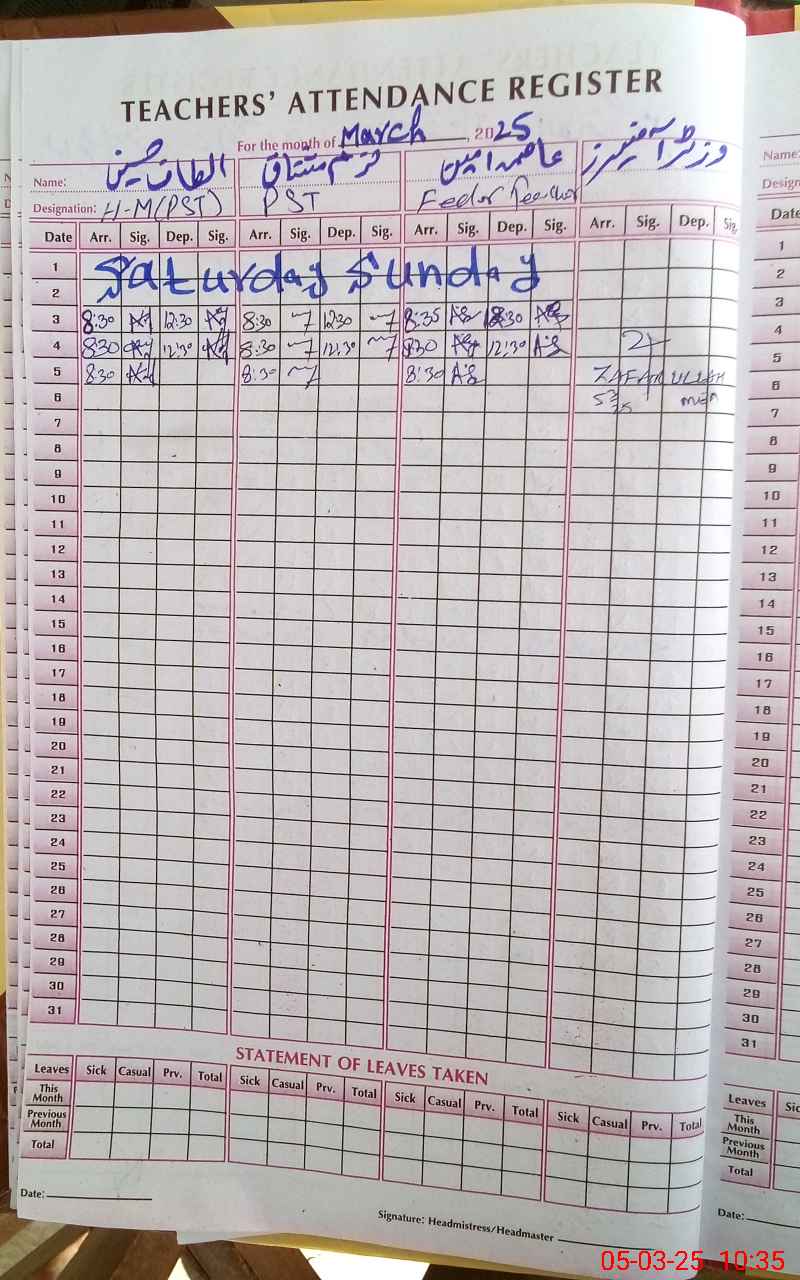 TEACHERS' ATTENDANCE REGISTER
For the month of March, 2025
Name: الطاف حسین عاصمہ امین وزٹر آفیسرز
Designation: H-M(PST) PST Feeder Teacher
Date Arr. Sig. Dep. Sig. Arr. Sig. Dep. Sig. Arr. Sig. Dep. Sig. Arr. Sig. Dep. Sig.
1 Saturday Sunday
2
3 8:30 12:30 8:30 12:30 8:35 12:30
4 8:30 12:30 8:30 12:30 8:30 12:30
5 8:30 8:30 8:30 ZAFAR ULLAH
6
7
8
9
10
11
12
13
14
15
16
17
18
19
20
21
22
23
24
25
26
27
28
29
30
31
STATEMENT OF LEAVES TAKEN
Leaves Sick Casual Prv. Total Sick Casual Prv. Total Sick Casual Prv. Total Sick Casual Prv. Total
This Month
Previous Month
Total
Date:
Signature: Headmistress/Headmaster
Name:
Date
1
2
3
4
5
6
7
8
9
10
11
12
13
14
15
16
17
18
19
20
21
22
23
24
25
26
27
28
29
30
31
Leaves
This Month
Previous Month
Total
Date:
05-03-25 10:35